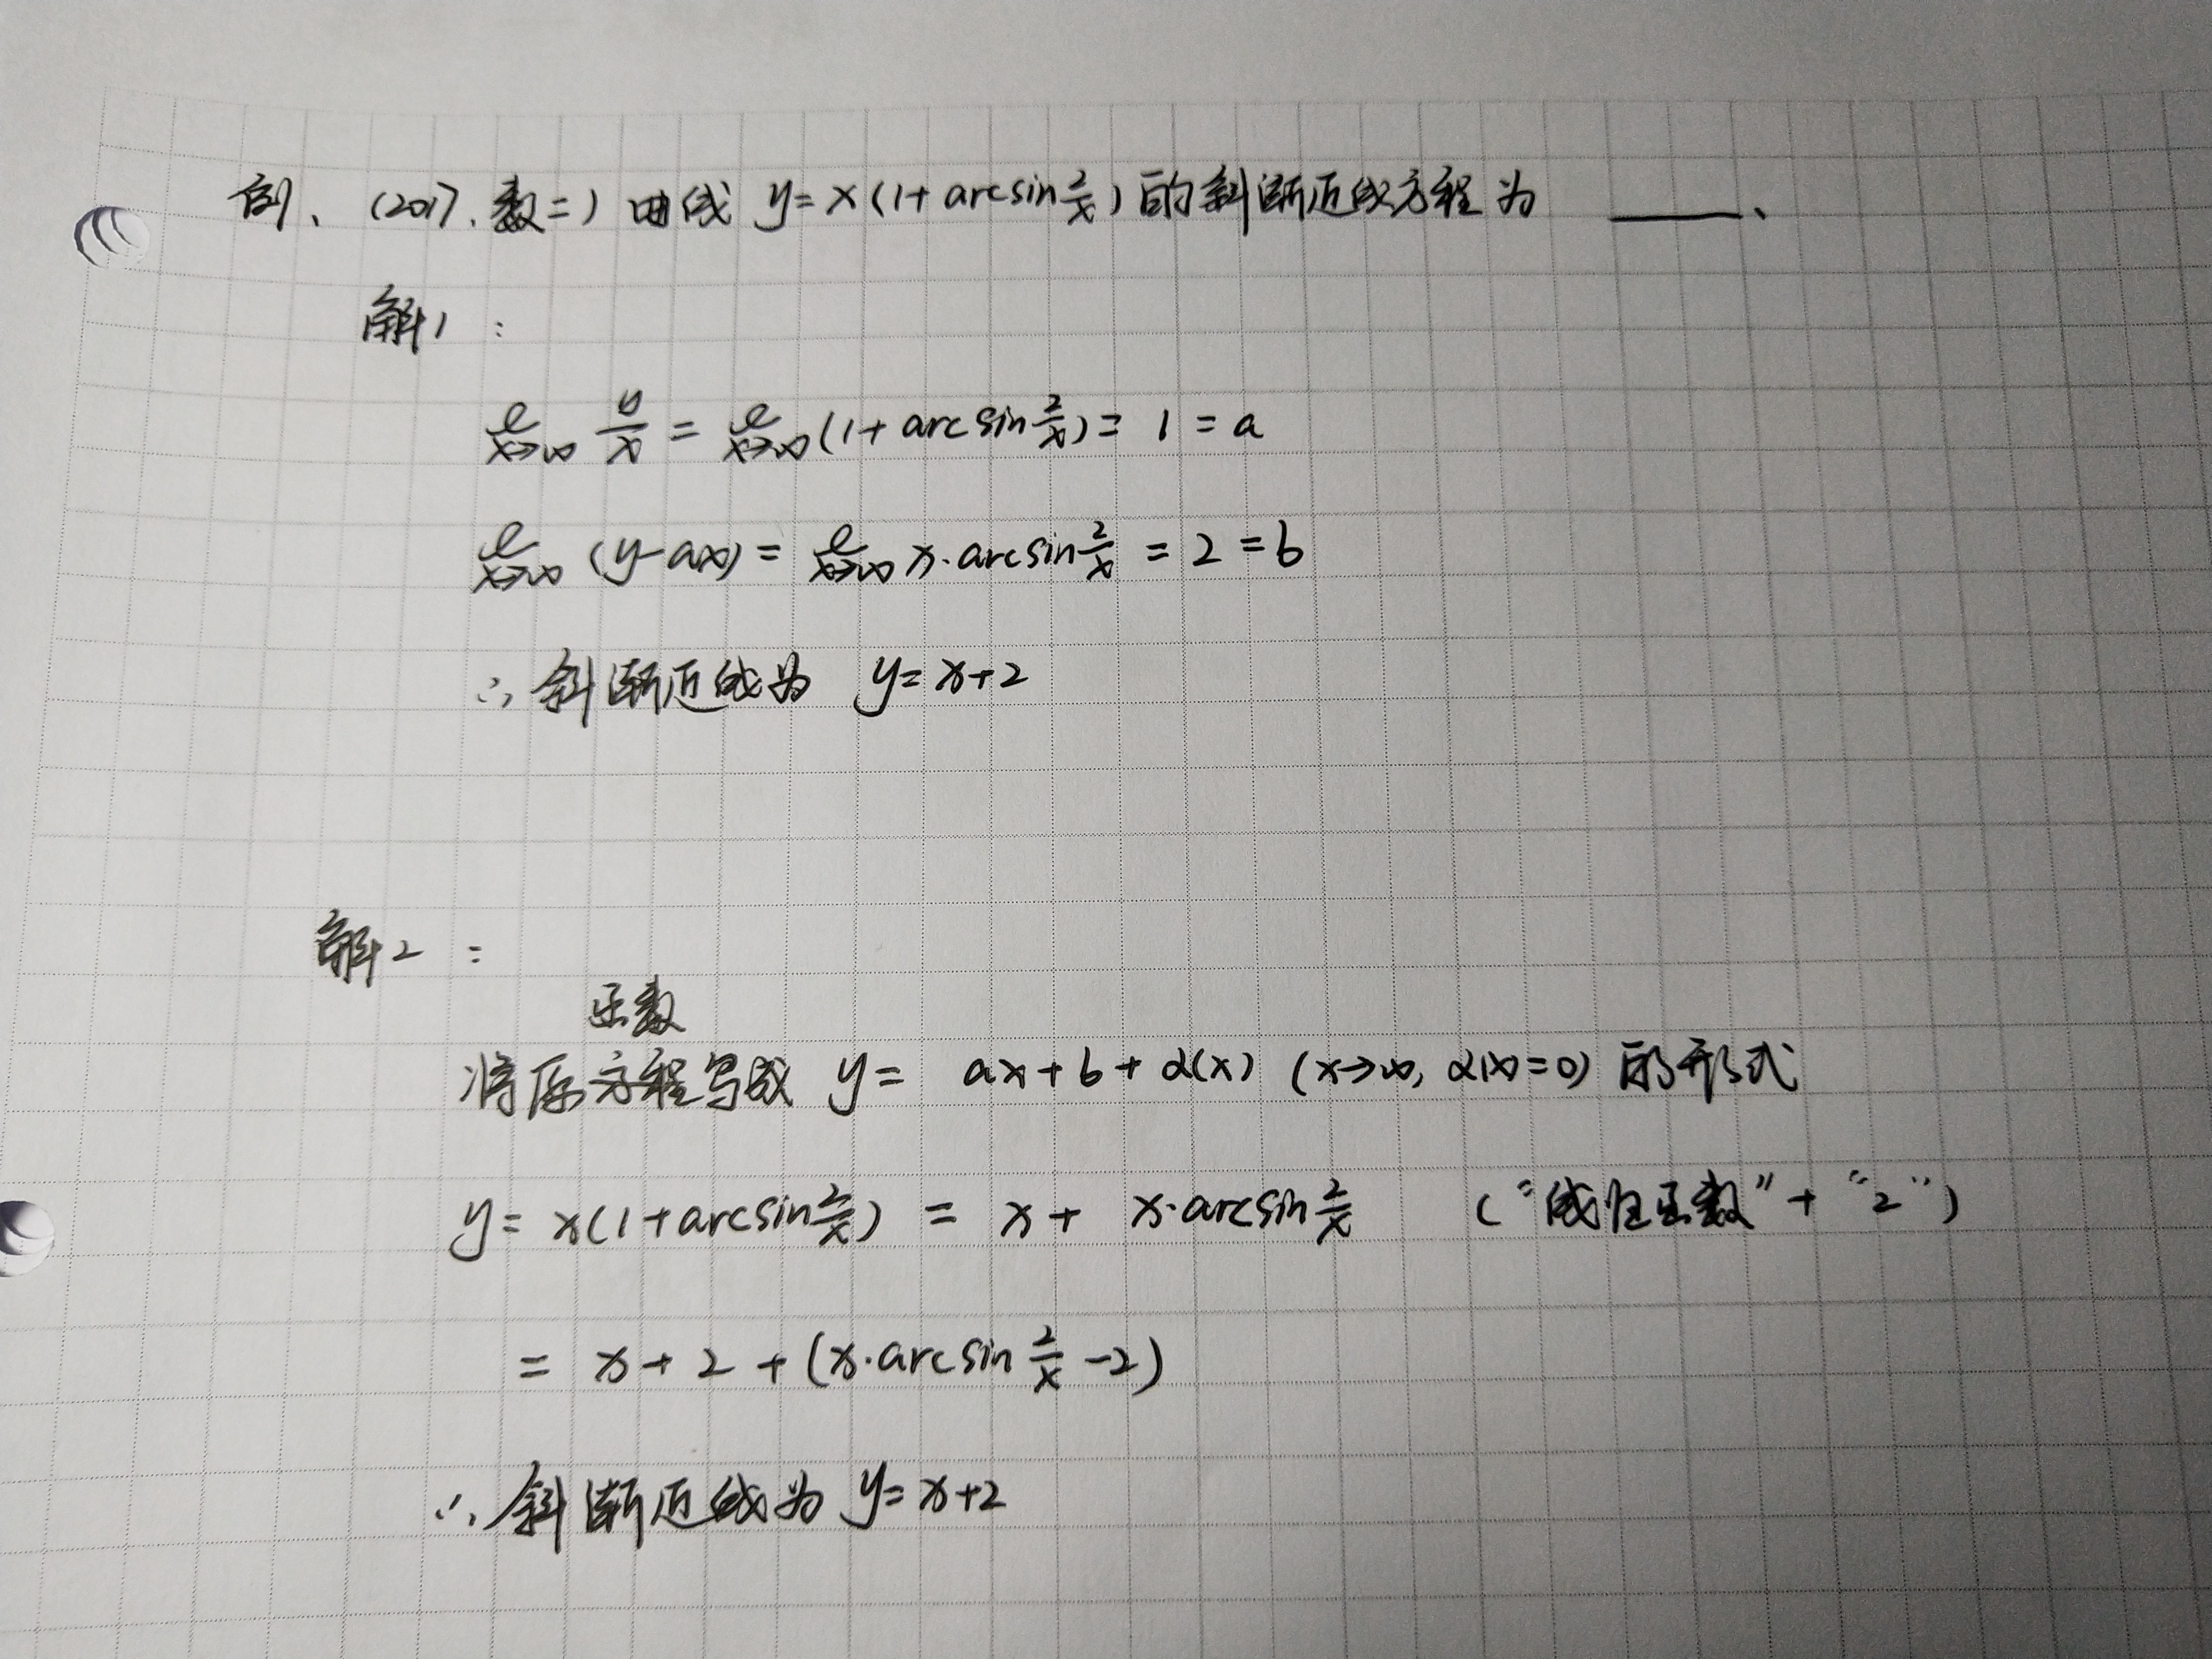 例、(2017.数二) 曲线 y=x(1+arcsin 2/x) 的斜渐近线方程为 ____、
解1：
l x→∞ y/x = l x→∞ (1+arcsin 2/x) = 1 = a
l x→∞ (y-ax) = l x→∞ x·arcsin 2/x = 2 = b
∴ 斜渐近线为 y=x+2
解2：
函数
将原方程写成 y= ax+b+α(x) (x→∞, α(x)=0) 的形式
y= x(1+arcsin 2/x) = x+ x·arcsin 2/x ("线性函数"+"2")
= x+2+(x·arcsin 2/x -2)
∴ 斜渐近线为 y=x+2